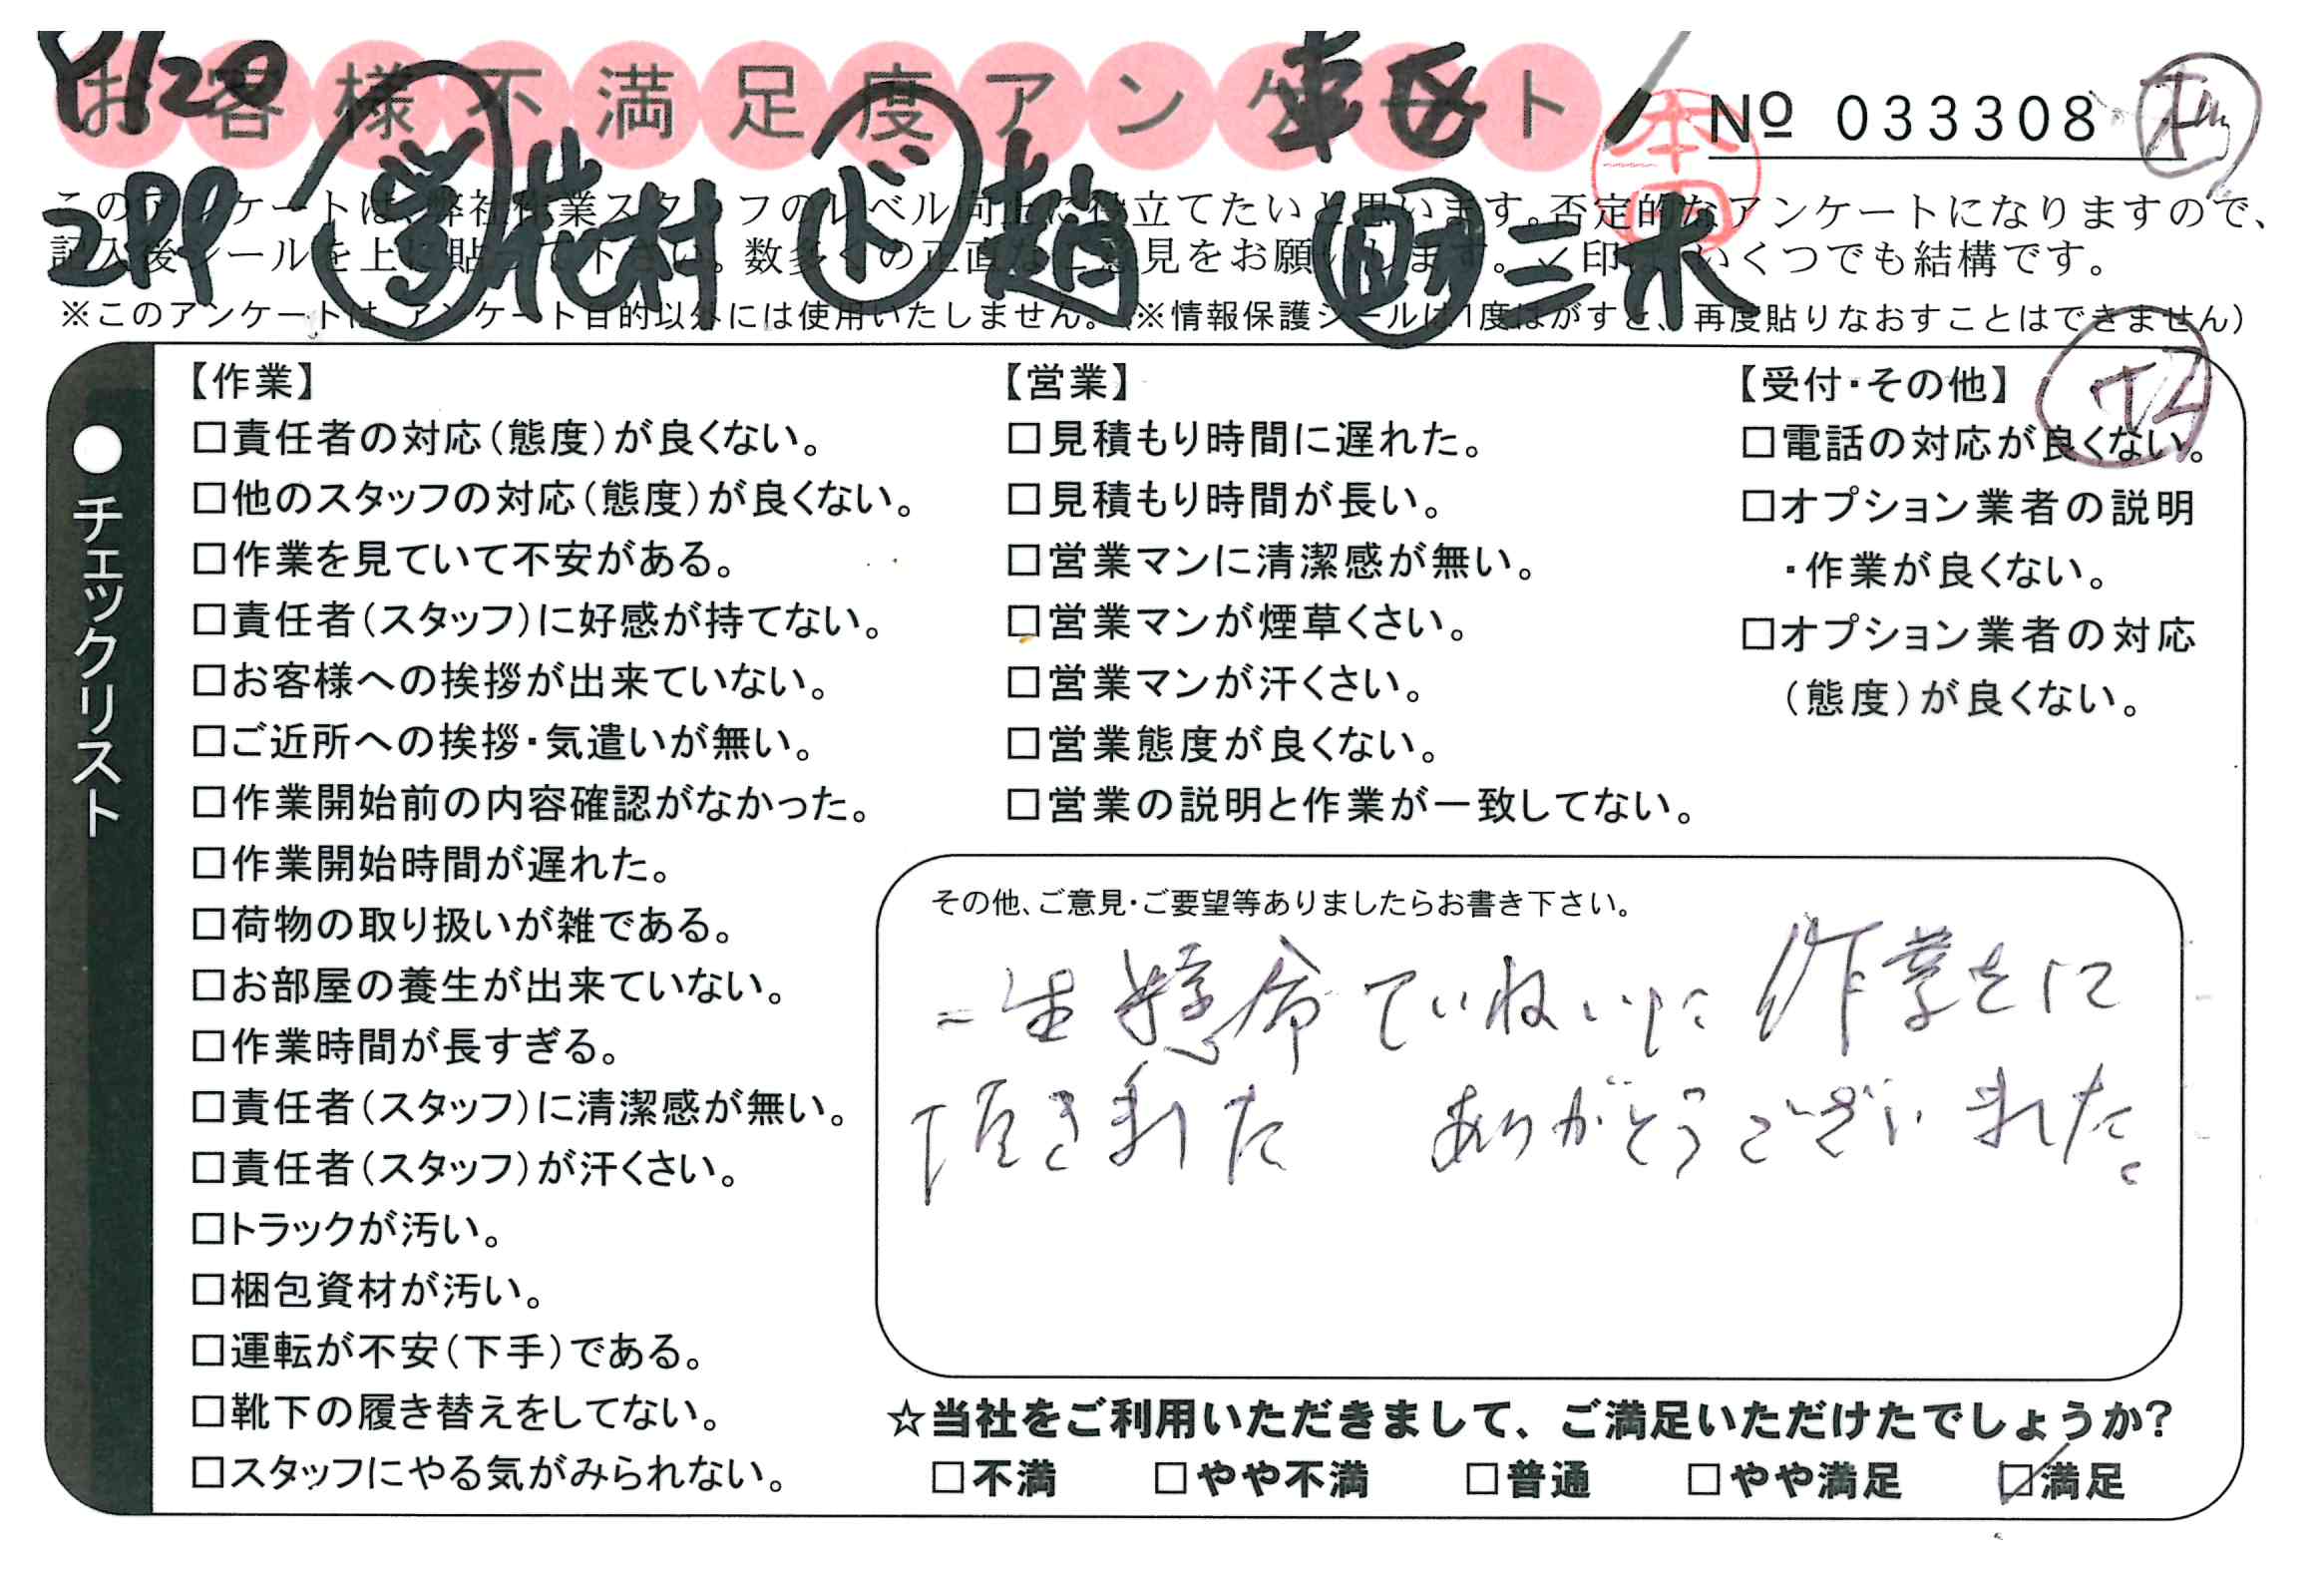 お客様不満足度アンケート
№ 033308
このアンケートは、弊社作業スタッフのレベル向上に役立てたいと思います。否定的なアンケートになりますので、
記入後シールを上に貼って下さい。数多くの正直なご意見をお願いします。✓印はいくつでも結構です。
※このアンケートは、アンケート目的以外には使用いたしません。(※情報保護シールは1度はがすと、再度貼りなおすことはできません)
花村 ㋣ 趙 三木
●チェックリスト
【作業】
□責任者の対応(態度)が良くない。
□他のスタッフの対応(態度)が良くない。
□作業を見ていて不安がある。
□責任者(スタッフ)に好感が持てない。
□お客様への挨拶が出来ていない。
□ご近所への挨拶・気遣いが無い。
□作業開始前の内容確認がなかった。
□作業開始時間が遅れた。
□荷物の取り扱いが雑である。
□お部屋の養生が出来ていない。
□作業時間が長すぎる。
□責任者(スタッフ)に清潔感が無い。
□責任者(スタッフ)が汗くさい。
□トラックが汚い。
□梱包資材が汚い。
□運転が不安(下手)である。
□靴下の履き替えをしてない。
□スタッフにやる気がみられない。
【営業】
□見積もり時間に遅れた。
□見積もり時間が長い。
□営業マンに清潔感が無い。
□営業マンが煙草くさい。
□営業マンが汗くさい。
□営業態度が良くない。
□営業の説明と作業が一致してない。
【受付・その他】
□電話の対応が良くない。
□オプション業者の説明
・作業が良くない。
□オプション業者の対応
(態度)が良くない。
その他、ご意見・ご要望等ありましたらお書き下さい。
一生懸命ていねいに作業をして
頂きました ありがとうございました。
☆当社をご利用いただきまして、ご満足いただけたでしょうか?
□不満 □やや不満 □普通 □やや満足 ☑満足